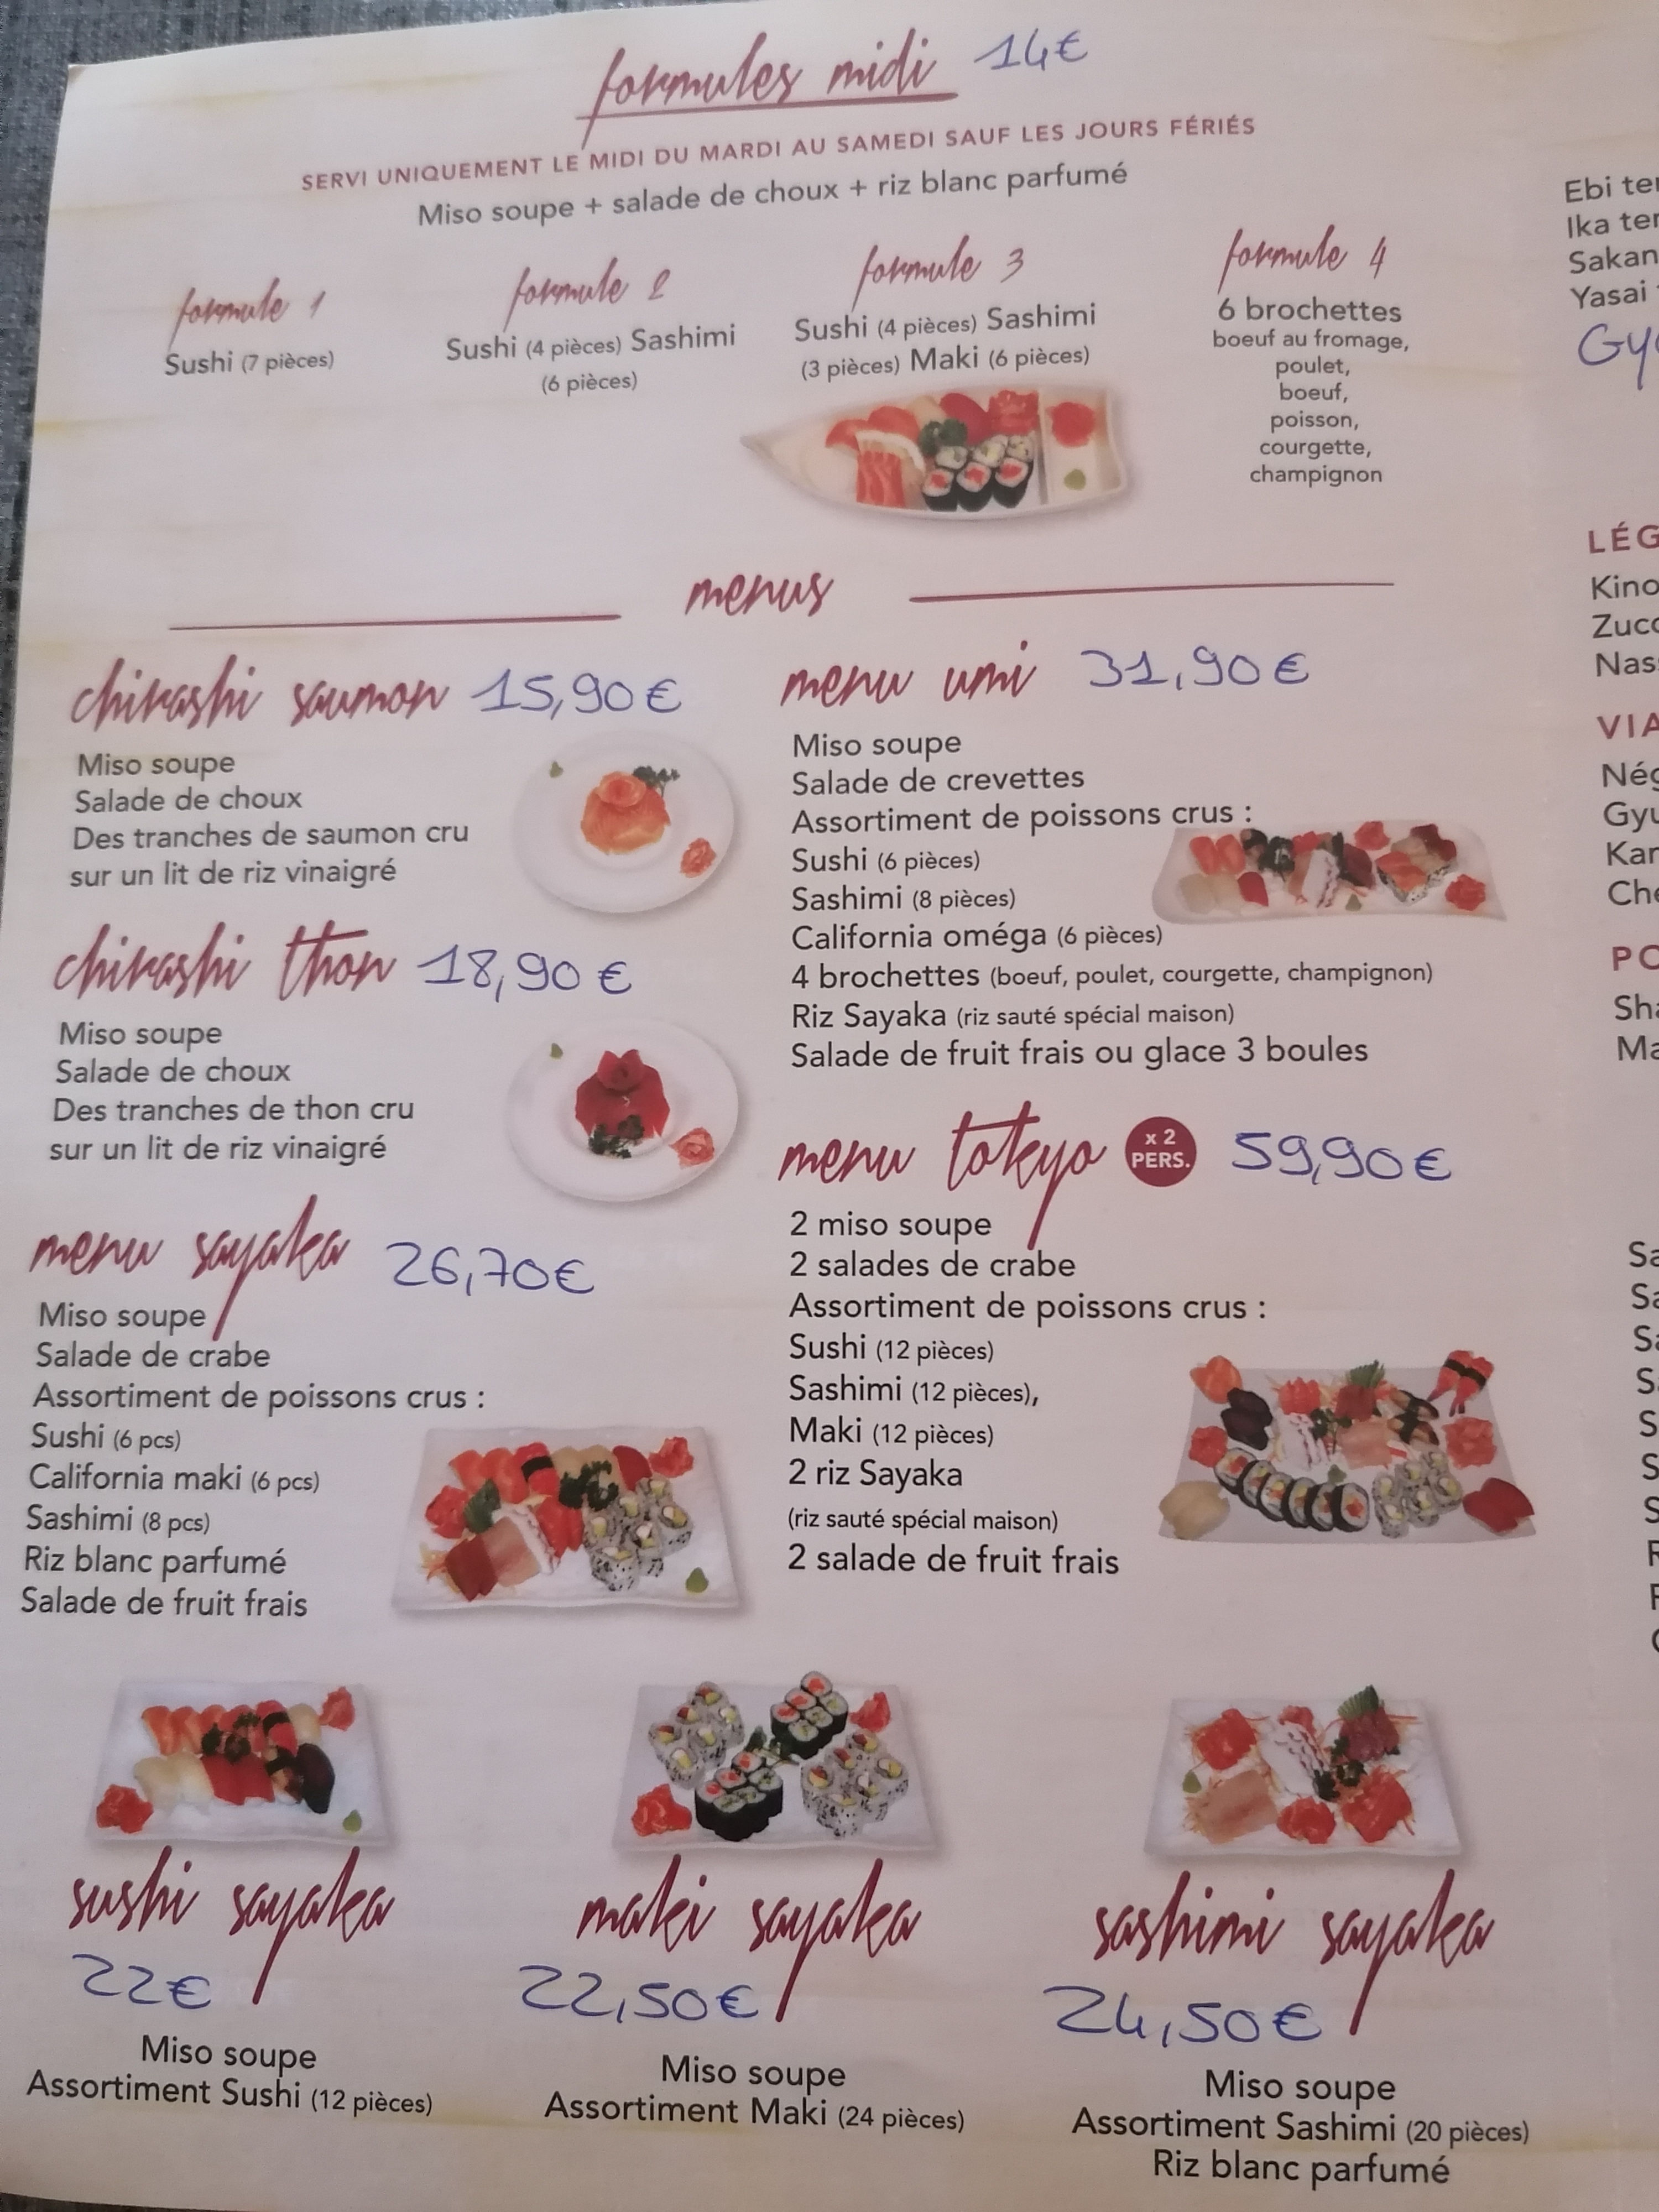 formules midi 14€
SERVI UNIQUEMENT LE MIDI DU MARDI AU SAMEDI SAUF LES JOURS FÉRIÉS
Miso soupe + salade de choux + riz blanc parfumé
formule 1
Sushi (7 pièces)
formule 2
Sushi (4 pièces) Sashimi
(6 pièces)
formule 3
Sushi (4 pièces) Sashimi
(3 pièces) Maki (6 pièces)
formule 4
6 brochettes
boeuf au fromage,
poulet,
boeuf,
poisson,
courgette,
champignon
menus
chirashi saumon 15,90€
Miso soupe
Salade de choux
Des tranches de saumon cru
sur un lit de riz vinaigré
chirashi thon 18,90€
Miso soupe
Salade de choux
Des tranches de thon cru
sur un lit de riz vinaigré
menu sayaka 26,70€
Miso soupe
Salade de crabe
Assortiment de poissons crus :
Sushi (6 pcs)
California maki (6 pcs)
Sashimi (8 pcs)
Riz blanc parfumé
Salade de fruit frais
menu umi 31,90€
Miso soupe
Salade de crevettes
Assortiment de poissons crus :
Sushi (6 pièces)
Sashimi (8 pièces)
California oméga (6 pièces)
4 brochettes (boeuf, poulet, courgette, champignon)
Riz Sayaka (riz sauté spécial maison)
Salade de fruit frais ou glace 3 boules
menu tokyo x 2 PERS. 59,90€
2 miso soupe
2 salades de crabe
Assortiment de poissons crus :
Sushi (12 pièces)
Sashimi (12 pièces),
Maki (12 pièces)
2 riz Sayaka
(riz sauté spécial maison)
2 salade de fruit frais
sushi sayaka
22€
Miso soupe
Assortiment Sushi (12 pièces)
maki sayaka
22,50€
Miso soupe
Assortiment Maki (24 pièces)
sashimi sayaka
24,50€
Miso soupe
Assortiment Sashimi (20 pièces)
Riz blanc parfumé
Ebi
Ika
Yasai